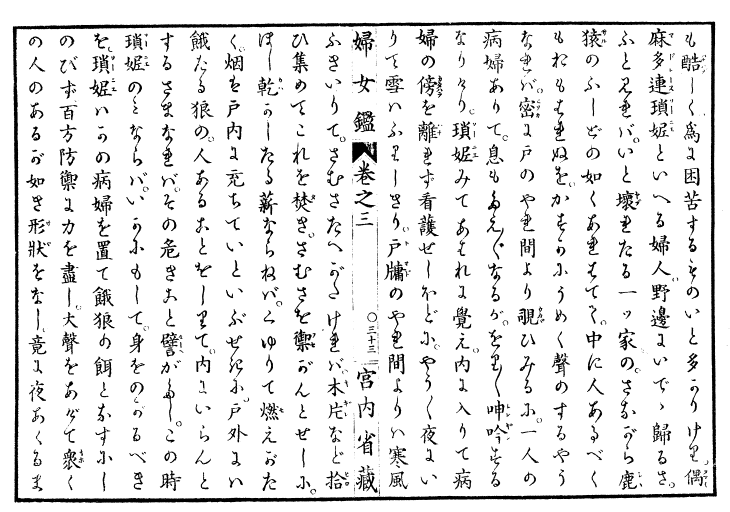 も酷しく爲に困苦するものいと多かりけり。偶
麻多連瑣妮といへる婦人。野邊にいでゝ歸るさ。
ふと見れば。いと壞れたる一ッ家の。さながら鹿
猿のふしどの如くあれはてゝ。中に人あるべく
もおもはれぬを。かすかにうめく聲のするやう
なれば。密に戸のやれ間より覗ひみるに。一人の
病婦ありて。息もたえ〲なるが。をり〱呻吟する
なりけり。瑣妮みてあはれに覺え。内に入りて病
婦の傍を離れず看護せしほどに。やう〱夜にい
りて雪はふりしきり。戸牖のやれ間よりは寒風
婦女鑑 卷之三 〇三十三 宮内省藏
ふきいりて。さむさたへがたければ。木片など拾
ひ集めてこれを焚き。さむさを禦がんとせしに。
ほし乾かしたる薪ならねば。くゆりて燃えがた
く。烟も戸内に充ちていといぶせきに。戸外には
餓たる狼の。人あることをしりて。内にいらんと
するさまなれば。その危きこと譬がたし。この時
瑣妮のみならば。いかにもして。身をのがるべき
を。瑣妮はかの病婦を置て餓狼の餌となすにし
のびず。百方防禦に力を盡し。大聲をあげて衆く
の人のあるが如き形狀をなし。竟に夜あくるま